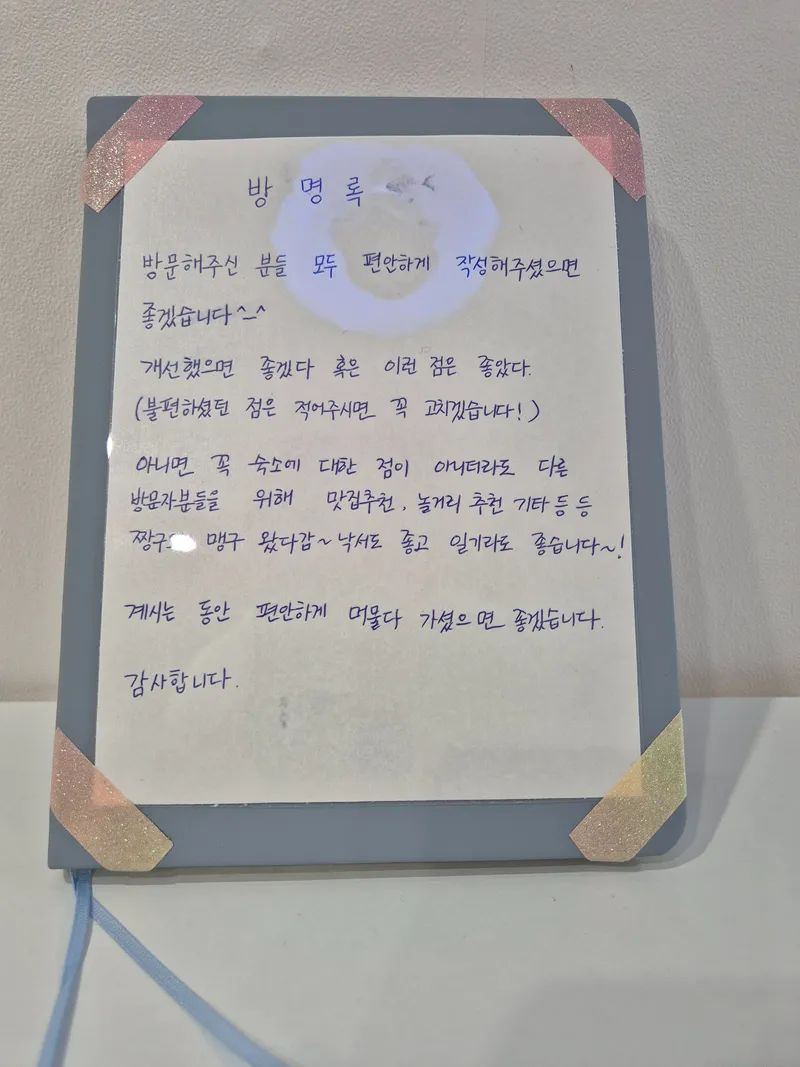 방명록
방문해주신 분들 모두 편안하게 작성해주셨으면
좋겠습니다^_^
개선했으면 좋겠다 혹은 이런 점은 좋았다.
(불편하셨던 점은 적어주시면 꼭 고치겠습니다!)
아니면 꼭 숙소에 대한 점이 아니더라도 다른
방문자분들을 위해 맛집추천, 놀거리 추천 기타 등 등
짱구 맹구 왔다감~ 낙서도 좋고 일기라도 좋습니다~!
계시는 동안 편안하게 머물다 가셨으면 좋겠습니다.
감사합니다.